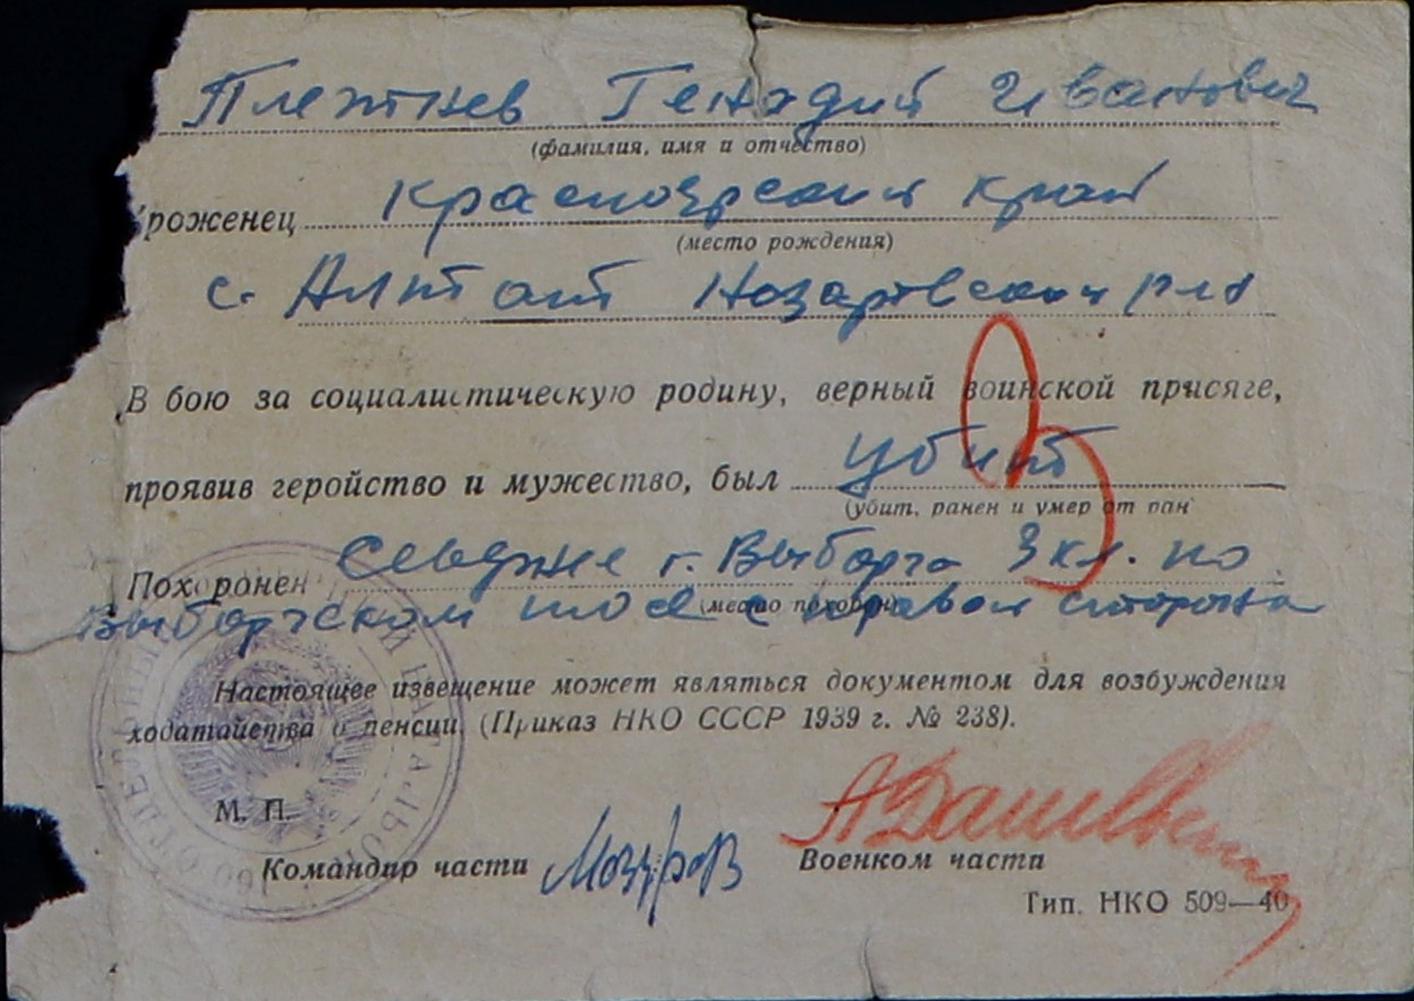 Плетнев Генадий Иванович
(фамилия, имя и отчество)
Уроженец Красноярский край
(место рождения)
с. Алтат Назаровский р-на
В бою за социалистическую родину, верный воинской присяге,
проявив геройство и мужество, был убит
(убит, ранен и умер от ран
Похоронен Севернее г. Выборга 3 кл. по
(место похорон)
Выборгском шосе с правой стороны
Настоящее извещение может являться документом для возбуждения
ходатайства о пенсии (Приказ НКО СССР 1939 г. № 238).
М. П.
Командир части Мозуров Военком части
Тип. НКО 509—40